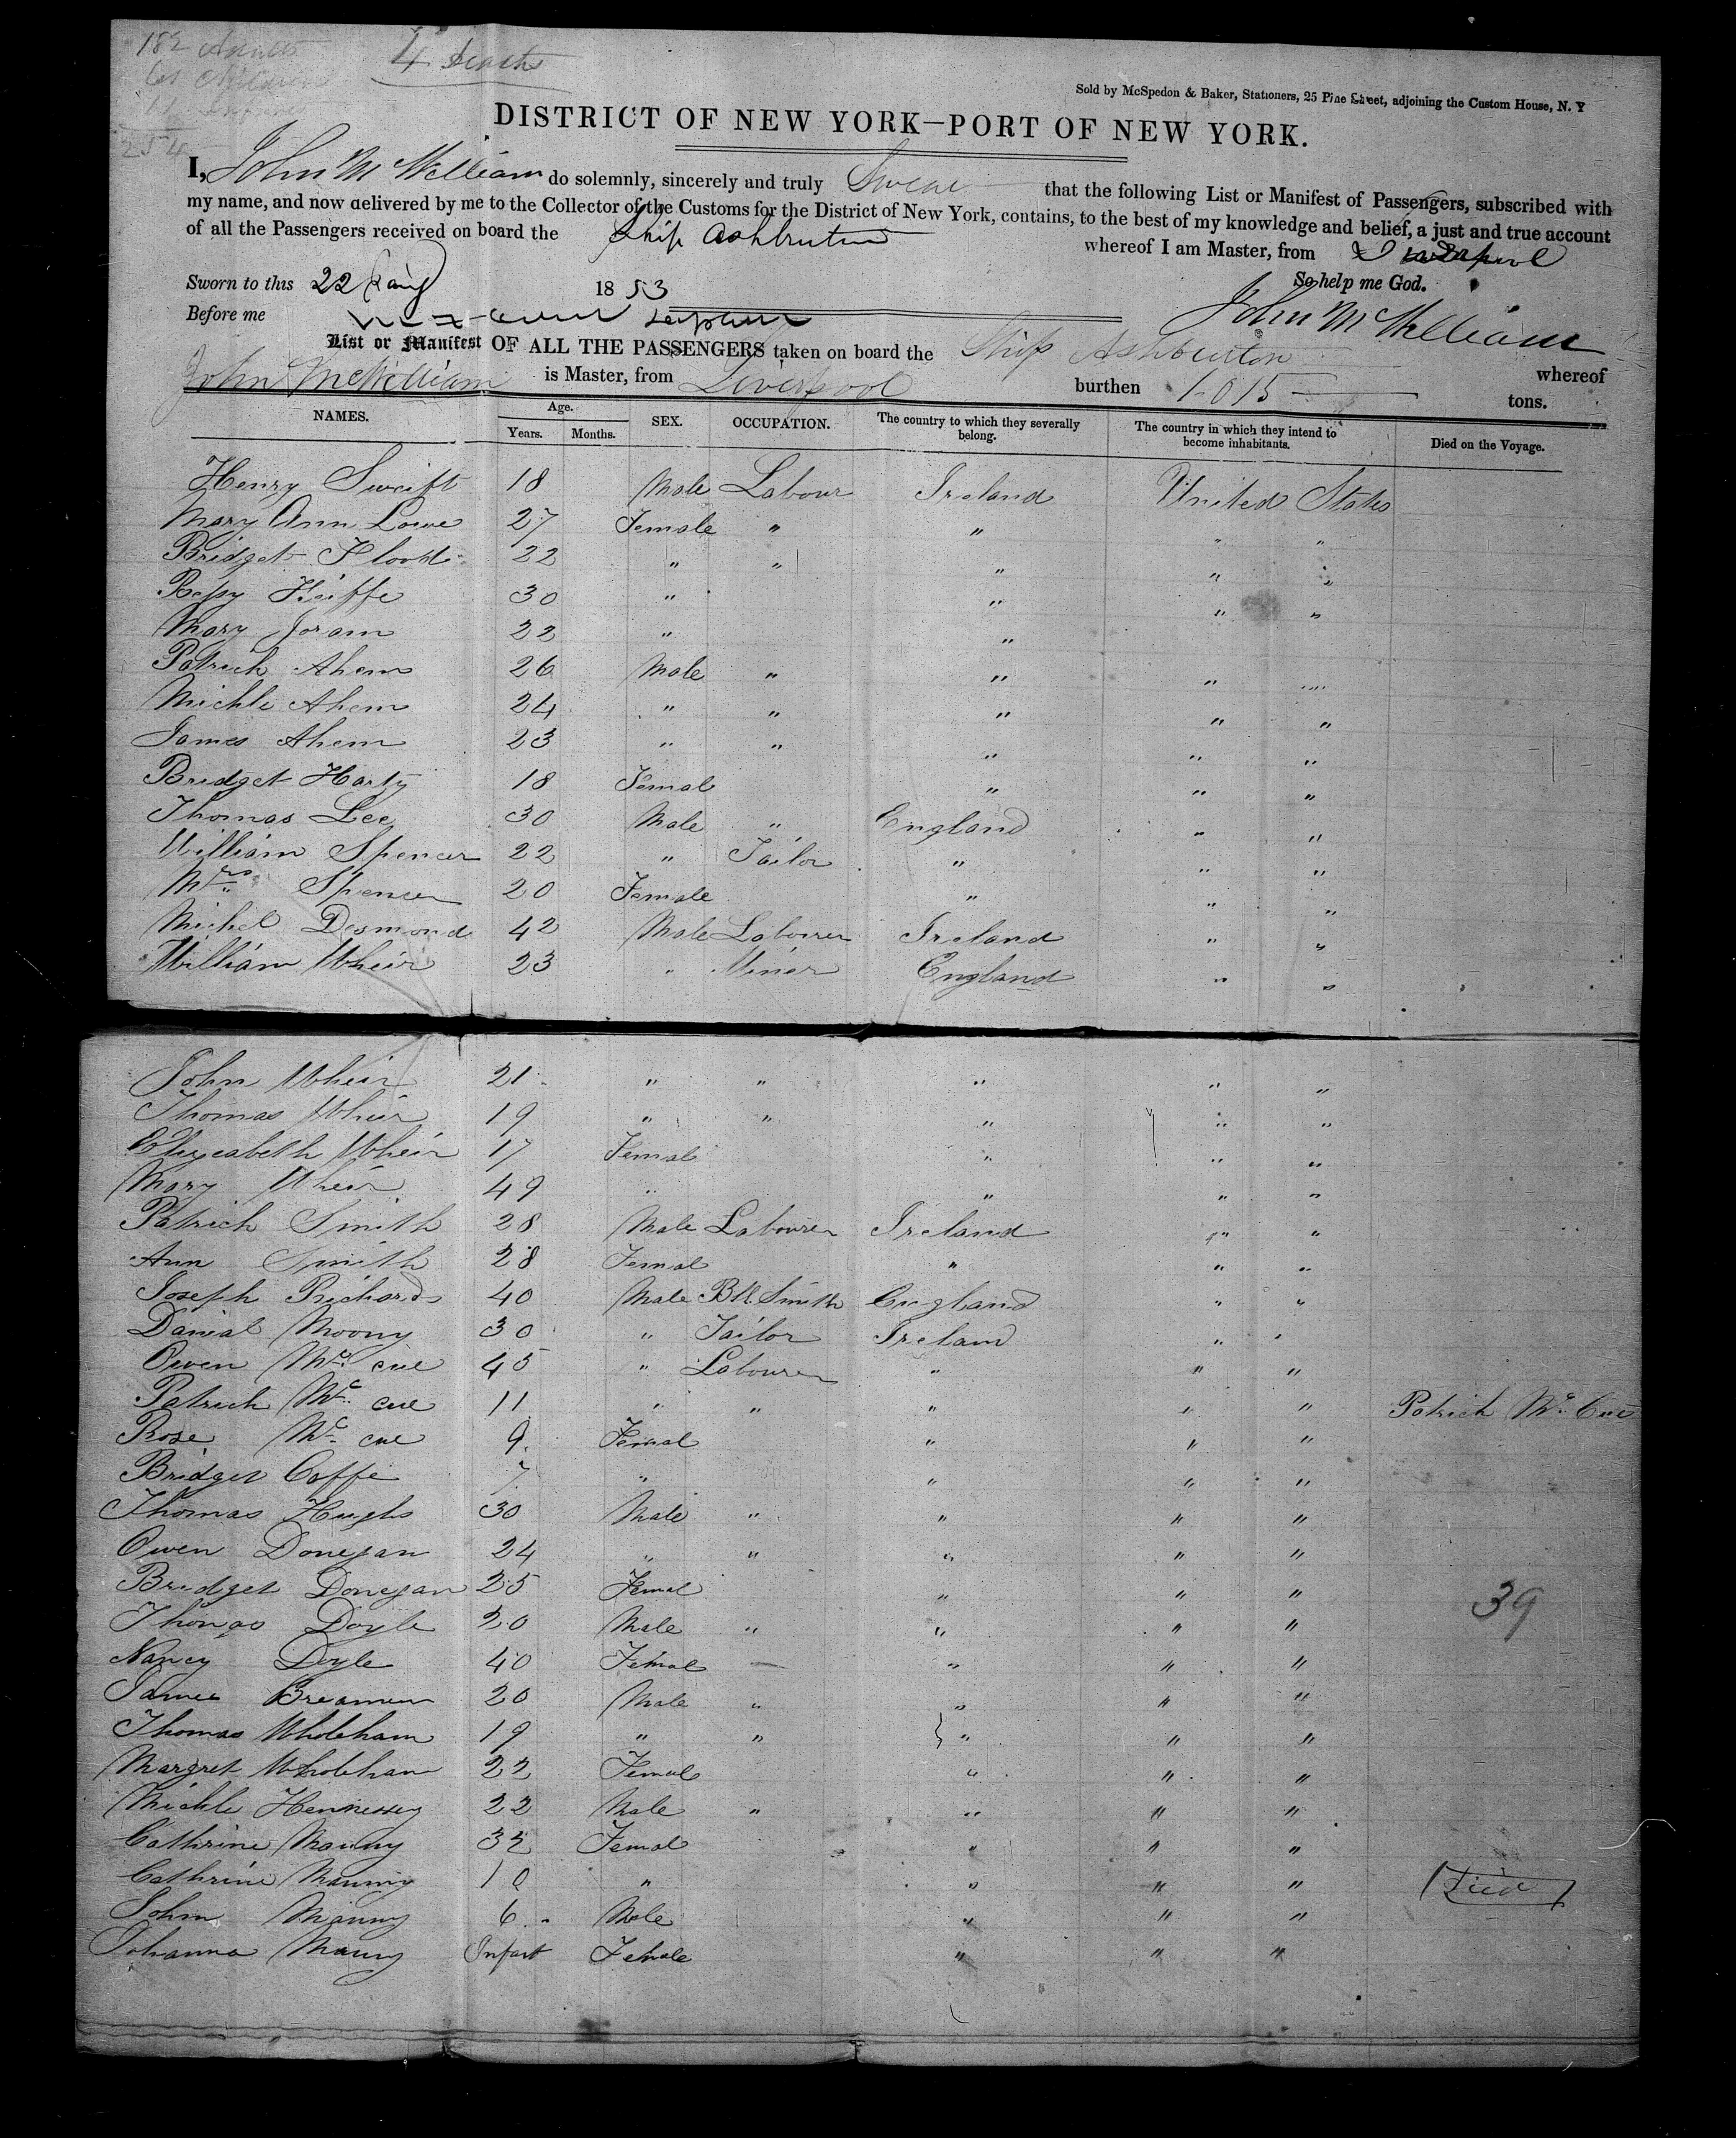 182 Adults
61 Children
11 Infants
254
4 deaths
Sold by McSpedon & Baker, Stationers, 25 Pine Street, adjoining the Custom House, N. Y
DISTRICT OF NEW YORK—PORT OF NEW YORK.
I, John McWilliam do solemnly, sincerely and truly Swear that the following List or Manifest of Passengers, subscribed with
my name, and now delivered by me to the Collector of the Customs for the District of New York, contains, to the best of my knowledge and belief, a just and true account
of all the Passengers received on board the Ship Ashburton whereof I am Master, from Liverpool
Sworn to this 22 1853 So help me God.
Before me John McWilliam
List or Manifest OF ALL THE PASSENGERS taken on board the Ship Ashburton whereof
John McWilliam is Master, from Liverpool burthen 1015 tons.
NAMES. Age. Years. Months. SEX. OCCUPATION. The country to which they severally belong. The country in which they intend to become inhabitants. Died on the Voyage.
Henry Swift 18 Male Labour Ireland United States
Mary Ann Lowe 27 Female " " " "
Bridget 22 " " " " "
Betsy Kiffe 30 " " " "
Mary Joram 22 " "
Patrick Ahern 26 Male " " " "
Michle Ahern 24 " " " " "
James Ahern 23 " " " " "
Bridget Harty 18 Femal " " "
Thomas Lee 30 Male " England " "
William Spencer 22 " Tailor " " "
Mrs Spencer 20 Female " " "
Michel Desmond 42 Male Labourer Ireland " "
William Wheir 23 " Miner England " "
John Wheir 21 " " " " "
Thomas Wheir 19 " " " " "
Elizeabeth Wheir 17 Femal " " "
Mary Wheir 49 " " " "
Patrick Smith 28 Male Labourer Ireland " "
Ann Smith 28 Femal " " "
Joseph Richards 40 Male Bk. Smith England " "
Danial Moony 30 " Tailor Irelan " "
Owen Mc cue 45 " Labourer " " "
Patrick Mc cue 11 " " " " " Patrick Mc Cue
Rose Mc cue 9 Femal " " "
Bridget Caffe 7 " " " "
Thomas Hughs 30 Male " " " "
Owen Donegan 24 " " " " "
Bridget Donegan 25 Femal " " "
39
Thomas Doyle 20 Male " " " "
Nancy Doyle 40 Femal — " " "
James 20 Male " " " "
Thomas Wholeham 19 " " " " "
Margret Wholeham 22 Femal " " "
Michle Hennessey 22 Male " " " "
Cathrine Manny 32 Femal " " "
Cathrine Manny 10 " " " " Died
John Manny 6 Male " " "
Johanna Manny Infant Female " " "